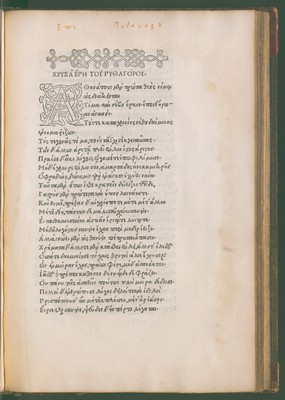 ΧΡΥΣΑ ΕΠΗ ΤΟΥ ΠΥΘΑΓΟΡΟΥ·
Αθανάτους μὲν πρῶτα θεοὺς νόμῳ
ὡς διάκεινται
Τίμα, καὶ σέβου ὅρκον, ἔπειθ' ἥρω-
ας ἀγαυούς.
Τούς τε καταχθονίους σέβε δαίμονας
ἔννομα ῥέζων.
Τούς τε γονεῖς τίμα, τούς τ' ἄγχιστ' ἐκγεγαῶτας.
Τῶν δ' ἄλλων ἀρετῇ ποιεῦ φίλον ὅστις ἄριστος.
Πραέσι δ' εἶκε λόγοις, ἔργοισί τ' ἐπωφελίμοισι.
Μηδ' ἔχθαιρε φίλον σὸν ἁμαρτάδος εἵνεκα μικρῆς
Οφρα δύνῃ, δύναμις γὰρ ἀνάγκης ἐγγύθι ναίει.
Ταῦτα μὲν οὕτως ἴσθι, κρατεῖν δ' εἰθίζεο τῶνδε,
Γαστρὸς μὲν πρώτιστα καὶ ὕπνου, λαγνείης τε
Καὶ θυμοῦ. πρήξεις δ' αἰσχρόν ποτε μήτε μετ' ἄλλου
Μήτ' ἰδίῃ, πάντων δὲ μάλιστ' αἰσχύνεο σαυτόν.
Εἶτα δικαιοσύνην ἀσκεῖν ἔργῳ τε λόγῳ τε.
Μηδ' ἀλογίστως σαυτὸν ἔχειν περὶ μηδὲν ἔθιζε.
Αλλὰ γνῶθι μὲν ὡς θανέειν πέπρωται ἅπασι.
Χρήματα δ' ἄλλοτε μὲν κτᾶσθαι φιλεῖ, ἄλλοτ' ὀλέσθαι.
Οσσα τε δαιμονίῃσι τύχαις βροτοὶ ἄλγε' ἔχουσιν,
Ων ἂν μοῖραν ἔχῃς, πράως φέρε, μηδ' ἀγανάκτει.
Ιᾶσθαι δὲ πρέπει καθόσον δύνῃ, ὧδε δὲ φράζευ.
Οὐ πάνυ τοῖς ἀγαθοῖς τούτων πολὺ μοῖρα δίδωσι.
Πολλοὶ δ' ἀνθρώποισι λόγοι δειλοί τε καὶ ἐσθλοὶ
Προσπίπτουσ', ὧν μήτ' ἐκπλήσσεο, μήτ' ἄρ' ἐάσῃς
Εἴργεσθαι σαυτόν. ψεῦδος δ' ἤν πέρ τι λέγηται